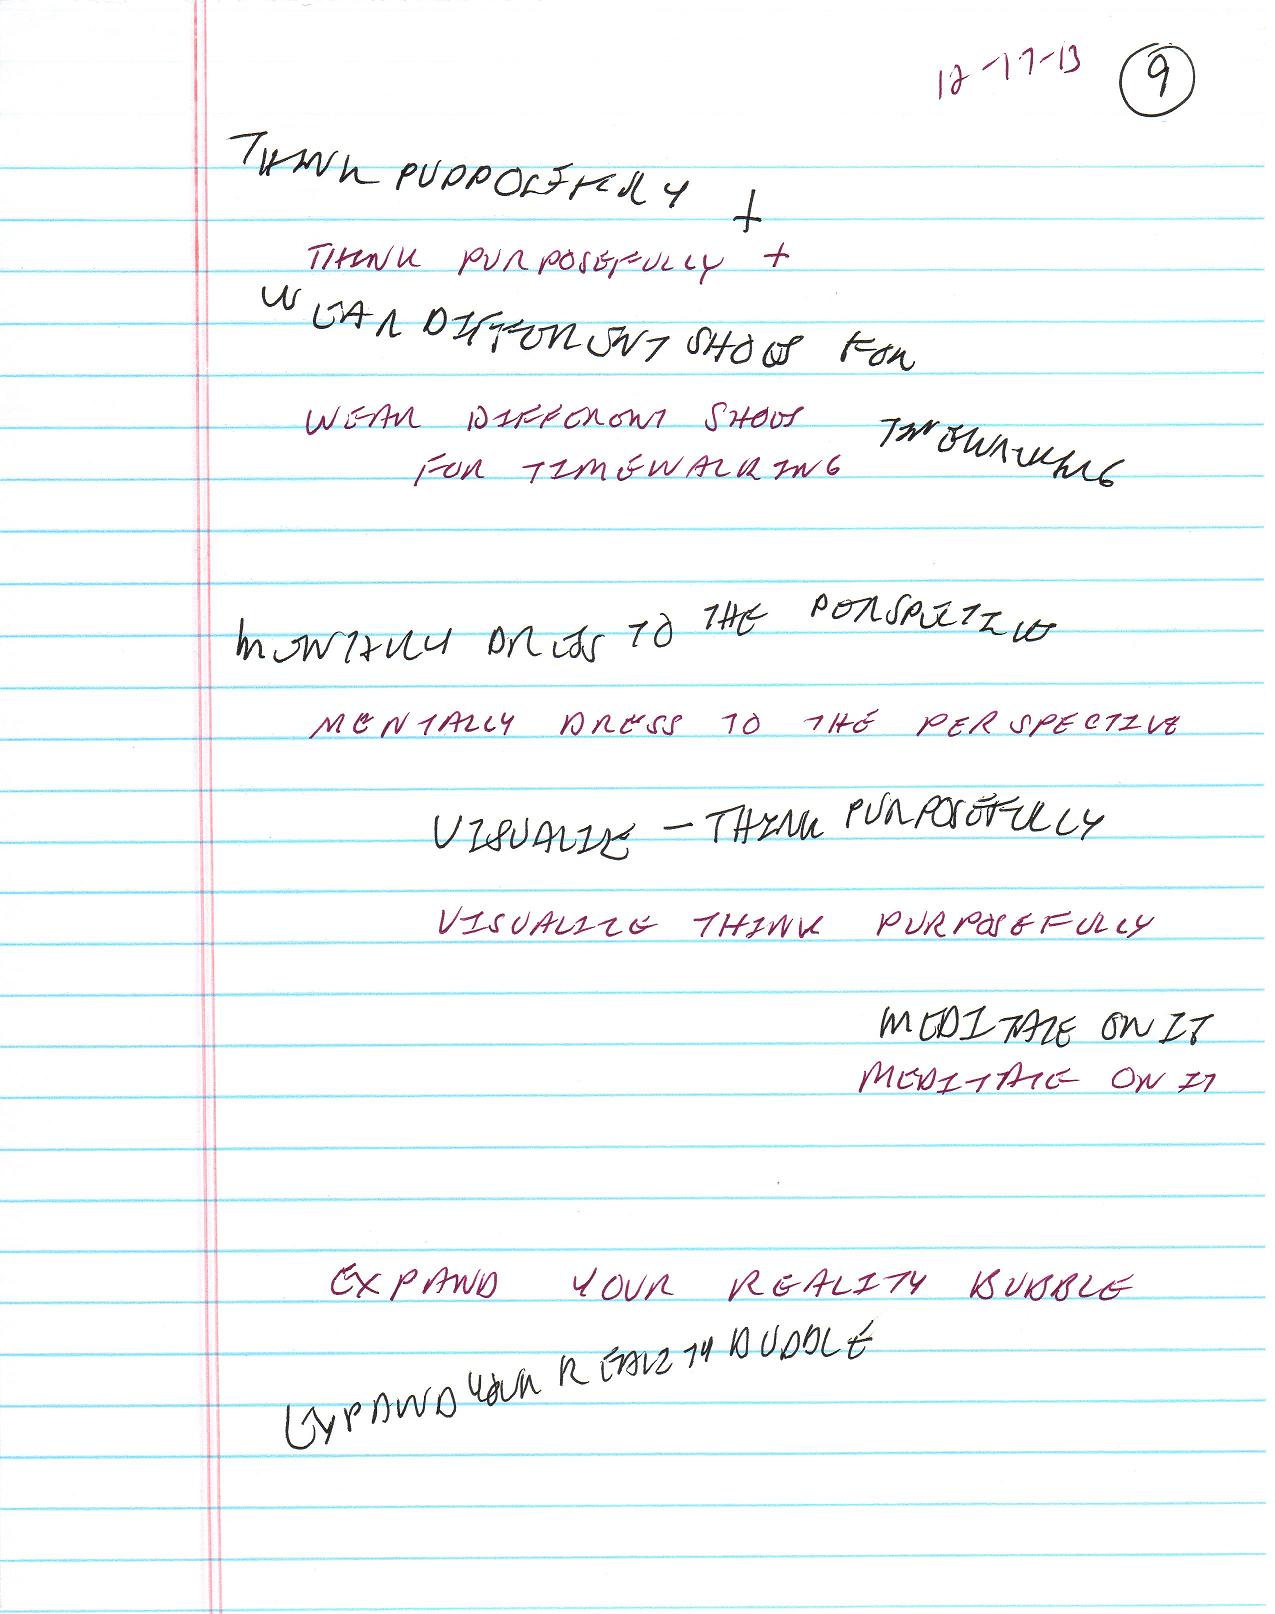 12-17-13 9
THINK PURPOSEFULLY +
THINK PURPOSEFULLY +
WEAR DIFFERENT SHOES FOR
WEAR DIFFERENT SHOES TIMEWALKING
FOR TIMEWALKING
MENTALLY DRESS TO THE PERSPECTIVE
MENTALLY DRESS TO THE PERSPECTIVE
VISUALIZE - THINK PURPOSEFULLY
VISUALIZE THINK PURPOSEFULLY
MEDITATE ON IT
MEDITATE ON IT
EXPAND YOUR REALITY BUBBLE
EXPAND YOUR REALITY BUBBLE